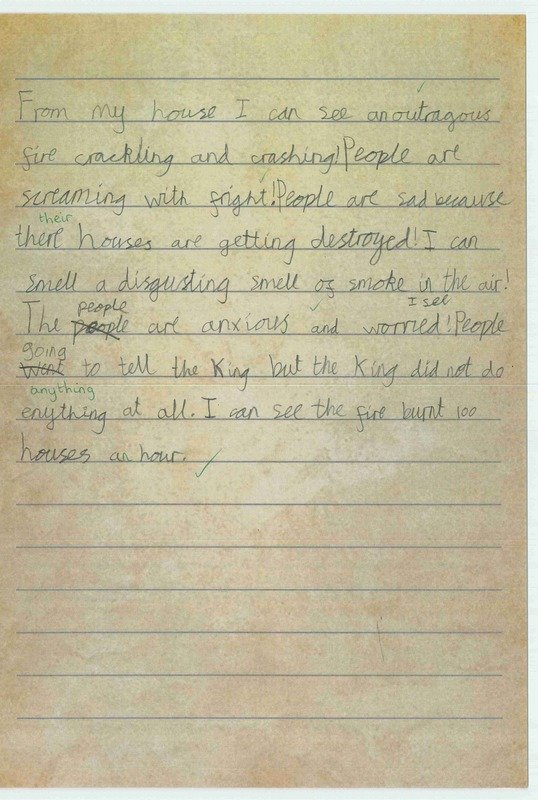 From my house I can see an outragous
fire crackling and crashing! People are
screaming with fright! People are sad because
their
there houses are getting destroyed! I can
smell a disgusting smell of smoke in the air!
people I see
The people are anxious and worried! People
going
went to tell the King but the King did not do
anything
enything at all. I can see the fire burnt 100
houses an hour.